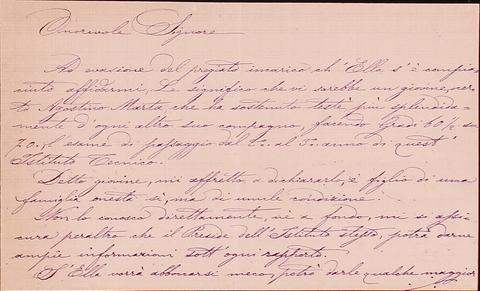 Onorevole Signore
Ad evasione del pregiato incarico ch'Ella s'è compia-
ciuto affidarmi, Le significo che vi sarebbe un giovine, cer-
to Agostino Marta che ha sostenuto testè più splendida-
mente d'ogni altro suo compagno, facendo gradi 60 ½ su
70, l'esame di passaggio dal 2º. al 3º. anno di quest'
Istituto Tecnico.
Detto giovine, mi affretto a dichiararlo, è figlio di una
famiglia onesta sì, ma di umile condizione.
Non lo conosco direttamente, nè a fondo, mi si assi-
cura peraltro che il Preside dell'Istituto stesso, potrà darne
ampie informazioni sott'ogni rapporto.
S'Ella vorrà abboccarsi meco, potrò darle qualche maggior